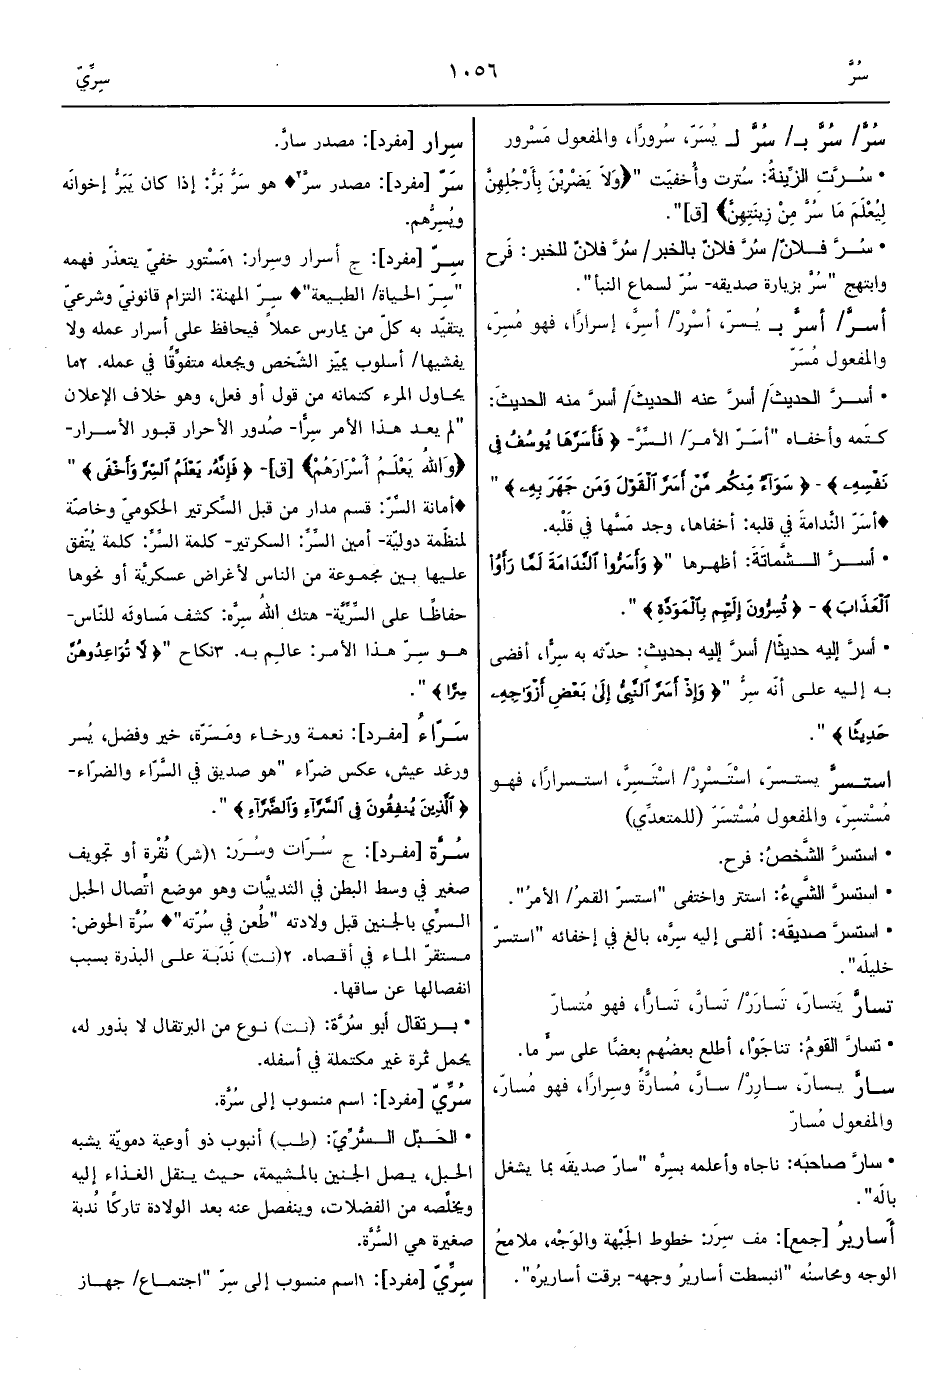 سُرَّ
١٠٥٦
سِرِّيّ
سُرَّ/ سُرَّ بـ/ سُرَّ لـ يُسَرّ، سُرورًا، والمفعول مَسْرور
• سُـرَّتِ الزِّينةُ: سُترت وأُخفيَت "﴿وَلَا يَضْرِبْنَ بِأَرْجُلِهِنَّ
لِيُعْلَمَ مَا سُرَّ مِنْ زِينَتِهِنَّ﴾ [ق]".
• سُـرَّ فـلانٌ/ سُرَّ فلانٌ بالخبر/ سُرَّ فلانٌ للخبر: فَرح
وابتهج "سُرَّ بزيارة صديقه- سُرّ لسماع النبأ".
أسرَّ/ أسرَّ بـ يُسـرّ، أسْرِرْ/ أسِرَّ، إسرارًا، فهو مُسِرّ،
والمفعول مُسَرّ
• أسـرَّ الحديثَ/ أسرَّ عنه الحديثَ/ أسرَّ منه الحديثَ:
كتَمه وأخفـاه "أسَـرّ الأمرَ/ السِّرَّ- ﴿فَأَسَرَّهَا يُوسُفُ فِى
نَفْسِهِۦ﴾- ﴿سَوَآءٌ مِّنكُم مَّنْ أَسَرَّ ٱلْقَوْلَ وَمَن جَهَرَ بِهِۦ﴾"
♦أسَرّ النَّدامةَ في قلبه: أخفاها، وجد مَسَّها في قَلْبه.
• أسـرَّ الـشَّماتةَ: أظهـرها "﴿وَأَسَرُّوا۟ ٱلنَّدَامَةَ لَمَّا رَأَوُا۟
ٱلْعَذَابَ﴾- ﴿تُسِرُّونَ إِلَيْهِم بِٱلْمَوَدَّةِ﴾".
• أسرَّ إليه حديثًا/ أسرَّ إليه بحديث: حدّثه به سِرًّا، أفضى
بـه إليـه علـى أنّه سِرُّ "﴿وَإِذْ أَسَرَّ ٱلنَّبِىُّ إِلَىٰ بَعْضِ أَزْوَٰجِهِۦ
حَدِيثًا﴾".
استـسرَّ يستـسرّ، اسْتَـسْرِرْ/ اسْتَـسِرَّ، استـسرارًا، فهـو
مُسْتسِرّ، والمفعول مُسْتَسَرّ (للمتعدِّي)
• استسرَّ الشَّخصُ: فرح.
• استسرَّ الشَّيءُ: استتر واختفى "استسرّ القمرُ/ الأمرُ".
• استسرَّ صديقَه: ألقـى إليه سِرَّه، بالغ في إخفائه "استسرّ
خليلَه".
تسارَّ يَتسارّ، تَسارَرْ/ تَسارَّ، تَسارًّا، فهو مُتسارّ
• تسارَّ القومُ: تناجَوْا، أطلع بعضُهم بعضًا على سرٍّ ما.
سـارَّ يـسارّ، سـارِرْ/ سـارَّ، مُسارَّةً وسِرارًا، فهو مُسارّ،
والمفعول مُسارّ
• سارَّ صاحبَه: ناجاه وأعلمه بسِرِّه "سارّ صديقَه بما يشغل
بالَه".
أَساريرُ [جمع]: مف سِرَر: خطوط الجَبْهة والوَجْه، ملامحُ
الوجه ومحاسنُه "انبسطت أساريرُ وجهه- برقت أساريرُه".
سِرار [مفرد]: مصدر سارَّ.
سَرّ [مفرد]: مصدر سرَّ٢♦ هو سَرُّ بَرُّ: إذا كان يَبَرُّ إخوانَه
ويُسِرُّهم.
سِـرّ [مفرد]: ج أسرار وسِرار: ١مَسْتور خفيّ يتعذّر فهمه
"سِرّ الحياة/ الطبيعة"♦ سِـرّ المهنة: التزام قانونيّ وشرعيّ
يتقيَّد به كلّ من يمارس عملاً فيحافظ على أسرار عمله ولا
يفشيها/ أسلوب يميّز الشّخص ويجعله متفوِّقًا في عمله. ٢ما
يحاول المرء كتمانه من قول أو فعل، وهو خلاف الإعلان
"لم يعـد هـذا الأمر سِرًّا- صُدور الأحرار قبـور الأسـرار-
﴿وَاللهُ يَعْلَمُ أَسْرَارَهُمْ﴾ [ق]- ﴿فَإِنَّهُۥ يَعْلَمُ ٱلسِّرَّ وَأَخْفَى﴾"
♦أمانة السِّرّ: قسم مدار من قبل السِّكرتير الحكوميّ وخاصّة
لمنظّمة دوليّة- أمين السِّرّ: السكرتير- كلمة السِّرّ: كلمة يُتّفق
عليـها بـين مجموعـة من الناس لأغراض عسكريَّة أو نحوها
حفاظًا على السِّرِّيَّة- هتك اللهُ سِرَّه: كشف مَساوئَه للنّاس-
هـو سِرّ هـذا الأمـر: عالِـم بـه. ٣نكاح "﴿لَّا تُوَاعِدُوهُنَّ
سِرًّا﴾".
سَرّاءُ [مفـرد]: نعمـة ورخـاء ومَـسَرّة، خير وفضل، يُسر
ورغد عيش، عكس ضرّاء "هو صديق في السَّرّاء والضرّاء-
﴿ٱلَّذِينَ يُنفِقُونَ فِى ٱلسَّرَّآءِ وَٱلضَّرَّآءِ﴾".
سُـرَّة [مفـرد]: ج سُـرّات وسُـرَر: ١(شر) نُقْرة أو تجويف
صغير في وسط البطن في الثدييَّات وهو موضع اتِّصال الحبل
السـرِّي بالجنين قبل ولادته "طُعن في سُرّته"♦ سُرَّة الحوض:
مـستقرّ المـاء في أقـصاه. ٢(نـت) نَدَبَة علـى البذرة بسبب
انفصالها عن ساقها.
• بـرتقال أبو سُرَّة: (نـت) نـوع من البرتقال لا بذور له،
يحمل ثمرة غير مكتملة في أسفله.
سُرِّيّ [مفرد]: اسم منسوب إلى سُرَّة.
• الحَـبْل الـسُّرِّيّ: (طـب) أنبوب ذو أوعية دمويّة يشبه
الحبل، يـصل الجنين بالمـشيمة، حيـث يـنقل الغـذاء إليه
ويخلِّصه من الفضلات، وينفصل عنه بعد الولادة تاركًا نُدبة
صغيرة هي السُّرَّة.
سِرِّيّ [مفرد]: ١اسم منسوب إلى سِرّ "اجتمـاع/ جهـاز